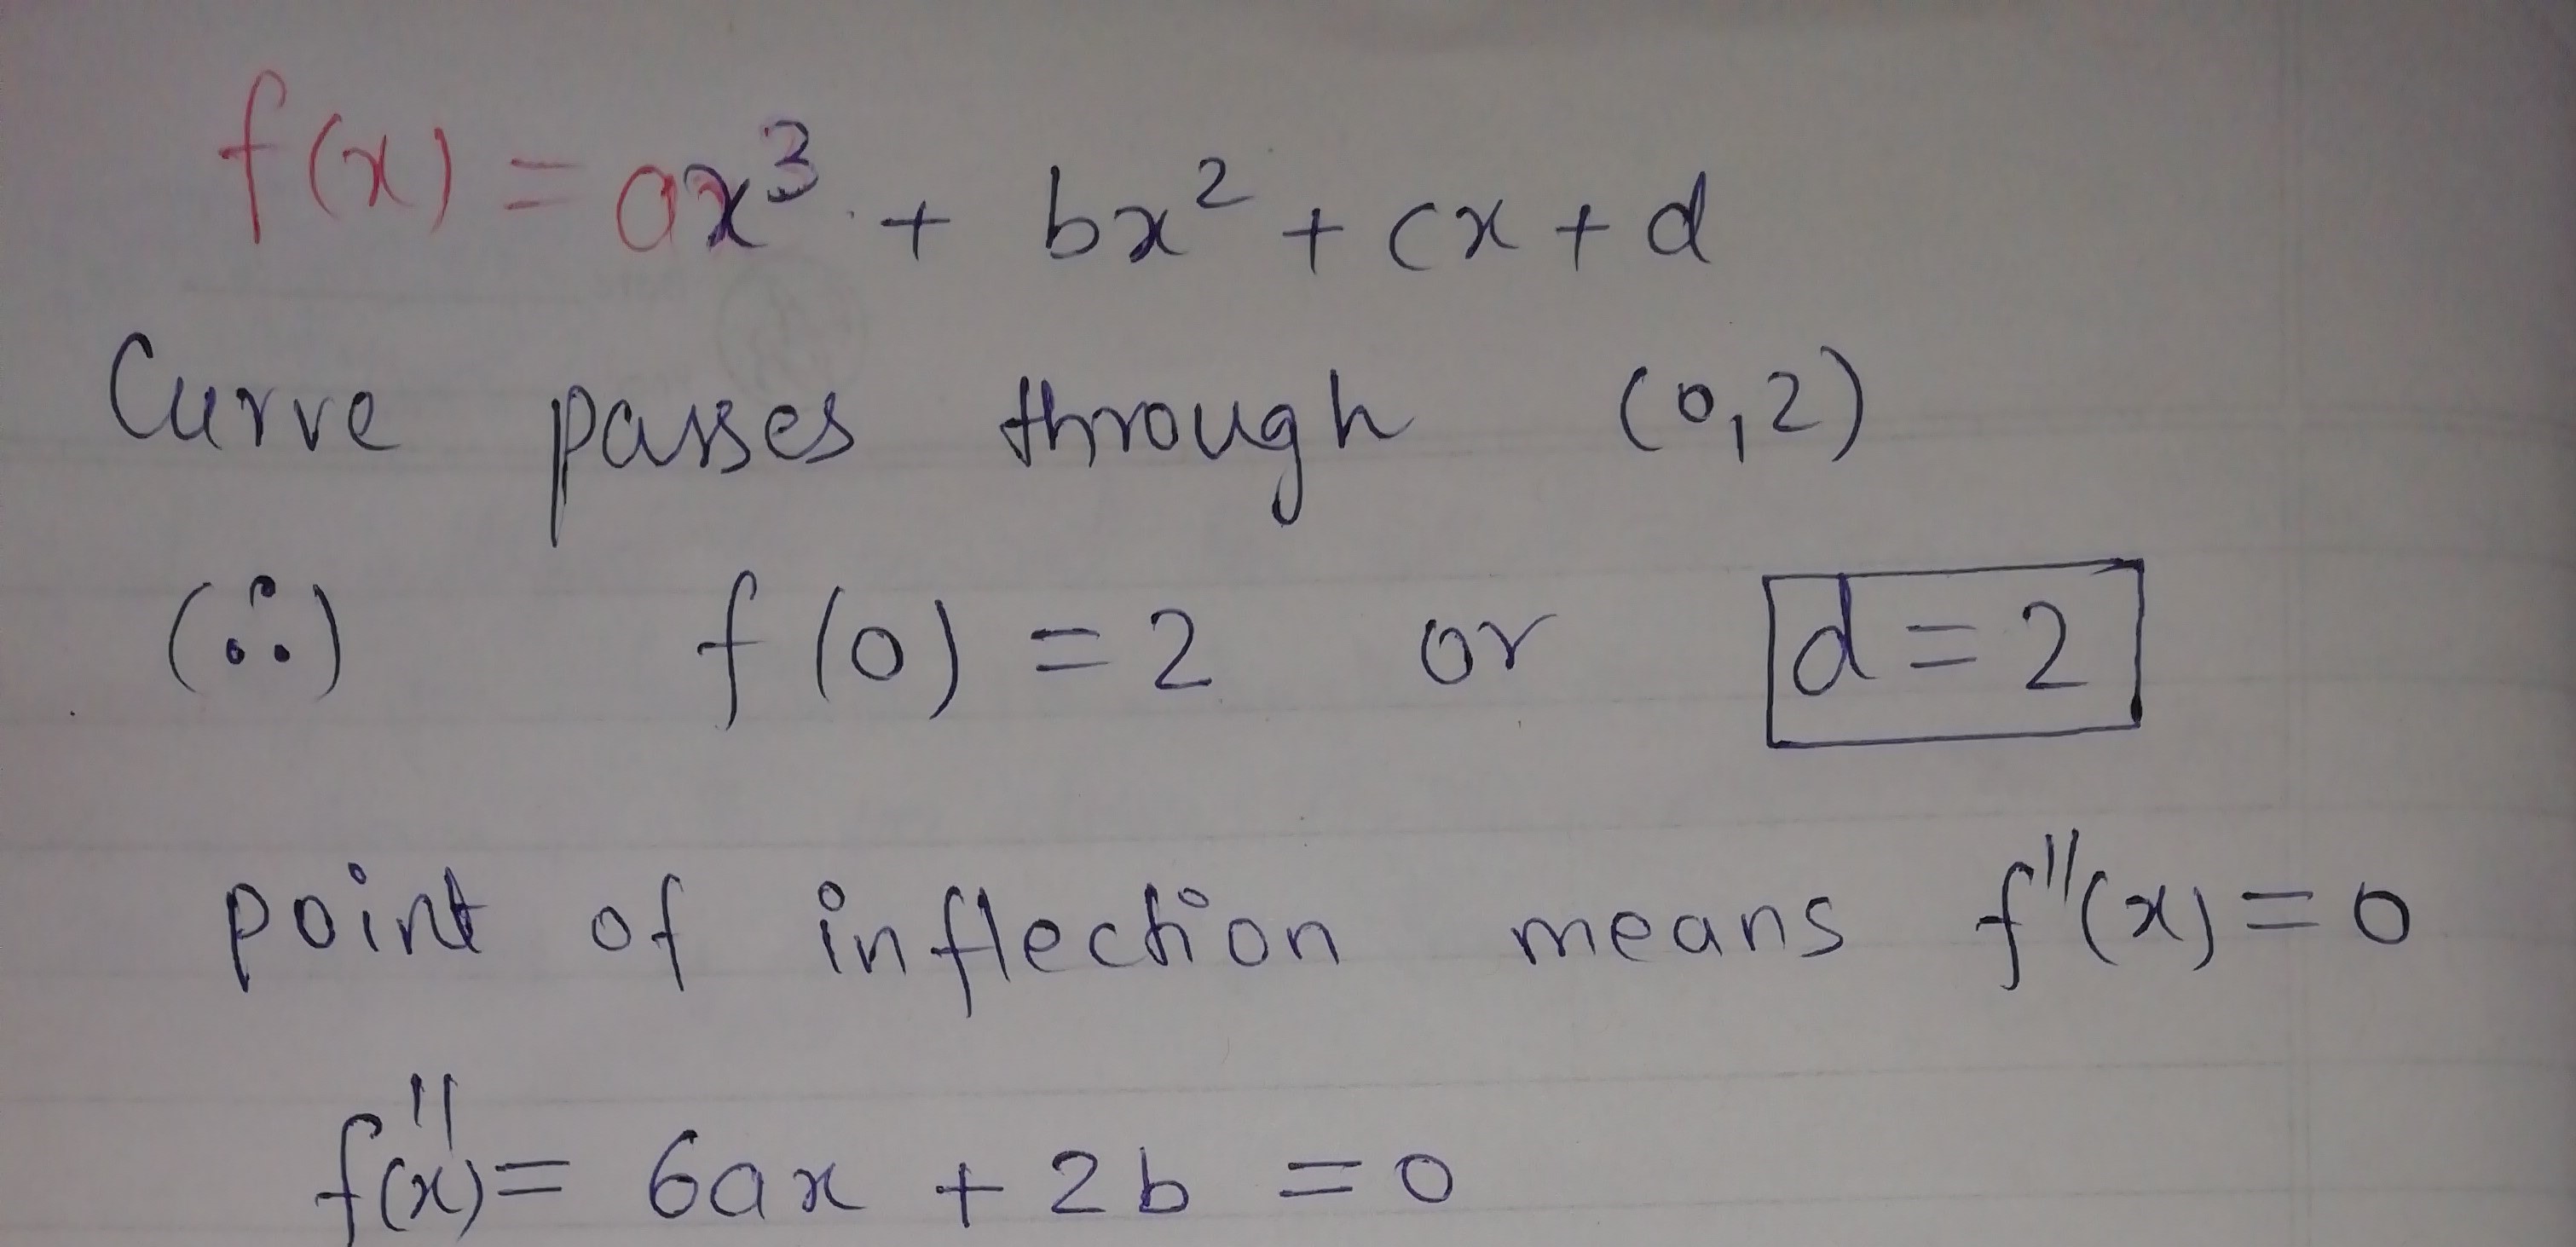 f(x) = ax³ + bx² + cx + d
Curve passes through (0,2)
(∴) f(0) = 2 or d = 2
point of inflection means f''(x) = 0
f''(x) = 6ax + 2b = 0